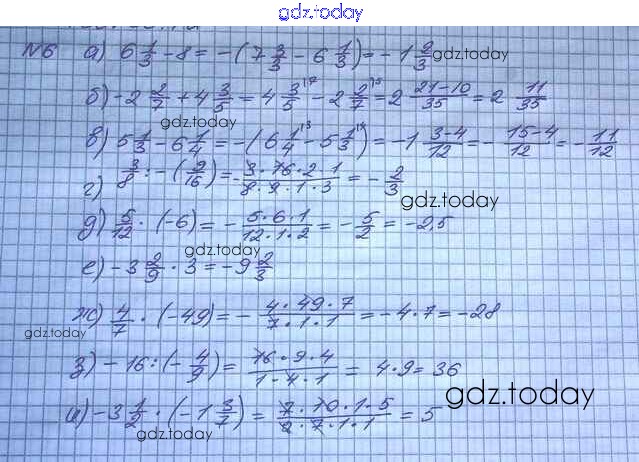 gdz.today
N6 а) 6 1/3 - 8 = -(7 3/3 - 6 1/3) = -1 2/3 gdz.today
б) -2 2/7 + 4 3/5 = 4 3/5 - 2 2/7 = 2 (21-10)/35 = 2 11/35
gdz.today
в) 5 1/3 - 6 1/4 = -(6 1/4 - 5 1/3) = -1 (3-4)/12 = -(15-4)/12 = -11/12
г) 3/8 : -(9/16) = -(3·16·2·1)/(8·9·1·3) = -2/3
gdz.today
д) 5/12 · (-6) = -(5·6·1)/(12·1·2) = -5/2 = -2,5
gdz.today
е) -3 2/9 · 3 = -9 2/3
ж) 4/7 · (-49) = -(4·49·7)/(7·1·1) = -4·7 = -28
gdz.today
з) -16 : (-4/9) = (16·9·4)/(1·4·1) = 4·9 = 36
gdz.today
и) -3 1/2 · (-1 3/7) = (7·10·1·5)/(2·7·1·1) = 5
gdz.today